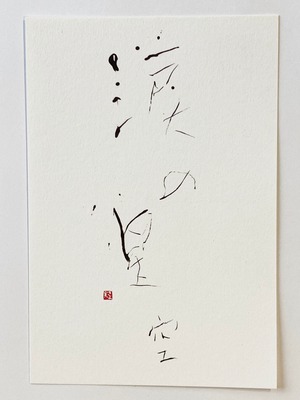 涙の星空